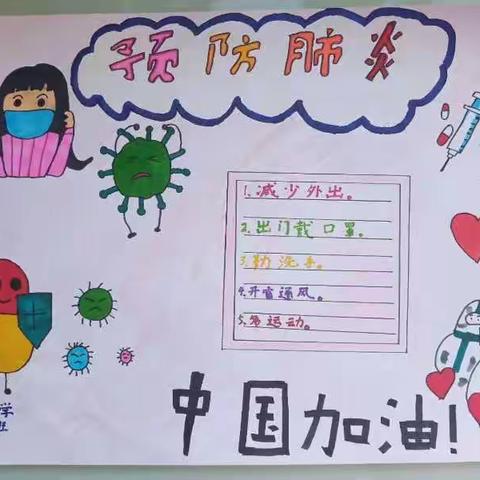 预防肺炎
1.减少外出。
2.出门戴口罩。
3.勤洗手。
4.开窗通风。
5.多运动。
中国加油!
学
班